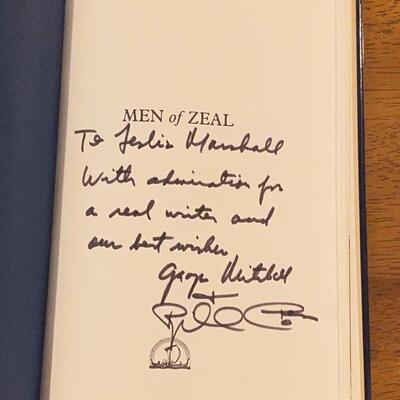 MEN of ZEAL
To Leslie Marshall
With admiration for
a real writer and
our best wishes
George Mitchell
+
Bill Co